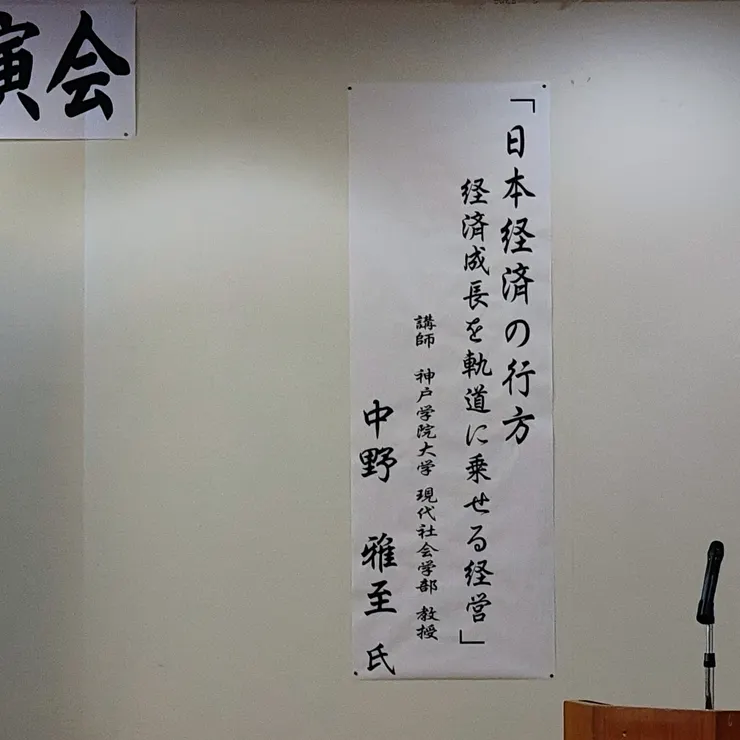 演会
「日本経済の行方
経済成長を軌道に乗せる経営」
講師 神戸学院大学 現代社会学部 教授
中野 雅至 氏